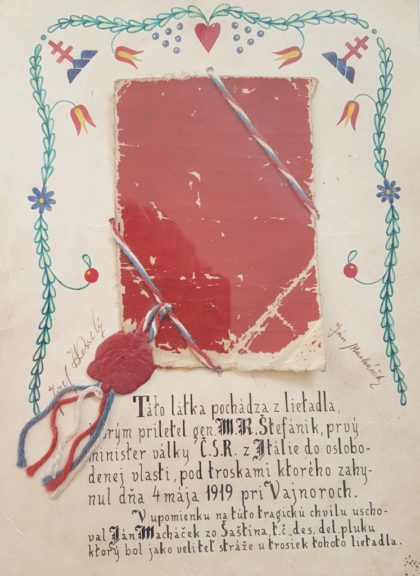 Táto látka pochádza z lietadla,
ktorým priletel gen. M.R. Štefánik, prvý
minister války Č.S.R. z Itálie do oslobo-
denej vlasti, pod troskami ktorého zahy-
nul dňa 4 mája 1919 pri Vajnoroch.
V upomienku na túto tragickú chvíľu uscho-
val Ján Macháček zo Šaštína, t.č. des. del. pluku
ktorý bol jako veliteľ stráže u trosiek tohoto lietadla.
Ján Macháček
Jozef